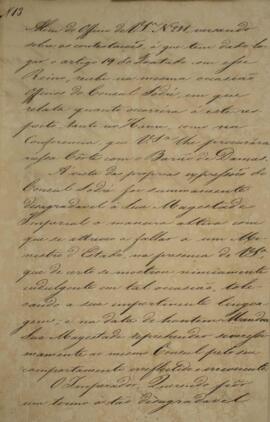 Alem do Officio de V. Sª Nº 91, versando
sobre as contestações, á que tem dado lu-
gar o artigo 19 do Tratado com esse
Reino, recebi na mesma occasião
Officios do Consul Sodré, em que
relata quanto occorrêra á este res-
peito, tanto no Havre, como na
Conferencia, que V. Sª lhe procurára
nessa Côrte com o Barão de Damas.
A vista das proprias expressões do
Consul Sodré foi summamente
desagradavel á Sua Magestade
Imperial a maneira altiva com
que se atreveo a fallar a um Mi-
nistro d'Estado, na presença de V. Sª,
que de certo se mostrou nimiamente
indulgente em tal occasião, tole-
rando a sua impertinente lingoa-
gem, e na data de hontem Mandou
Sua Magestade reprehender severa-
mente ao mesmo Consul pelo seu
comportamento irreflectido e irreverente.
O Imperador, Querendo pôr
um termo á tão desagradavel